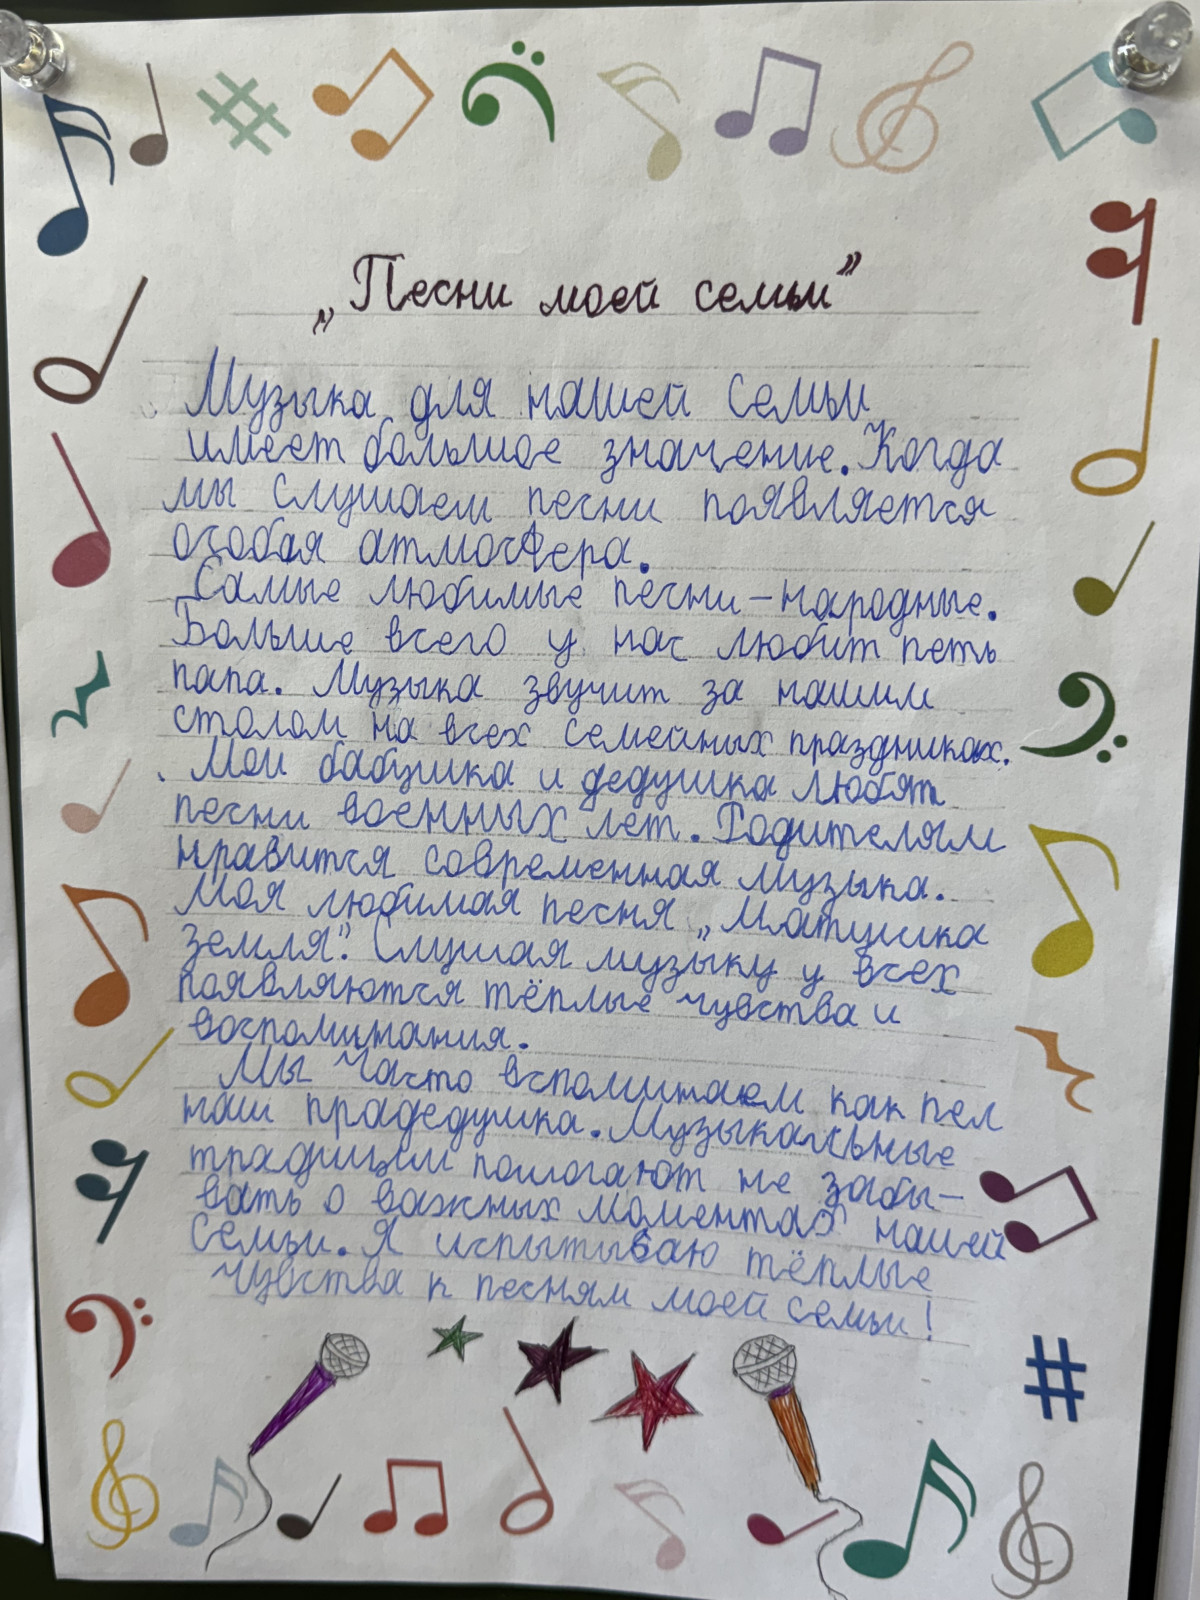 „Песни моей семьи”
Музыка для нашей семьи
имеет большое значение. Когда
мы слушаем песни появляется
особая атмосфера.
Самые любимые песни – народные.
Больше всего у нас любит петь
папа. Музыка звучит за нашим
столом на всех семейных праздниках.
Мои бабушка и дедушка любят
песни военных лет. Родителям
нравится современная музыка.
Моя любимая песня „Матушка
земля”. Слушая музыку у всех
появляются тёплые чувства и
воспоминания.
Мы часто вспоминаем как пел
наш прадедушка. Музыкальные
традиции помогают не забы-
вать о важных моментах нашей
семьи. Я испытываю тёплые
чувства к песням моей семьи!